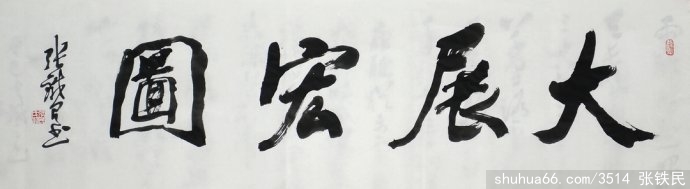 大展宏圖
張鐵民書
shuhua66.com/3514 张铁民